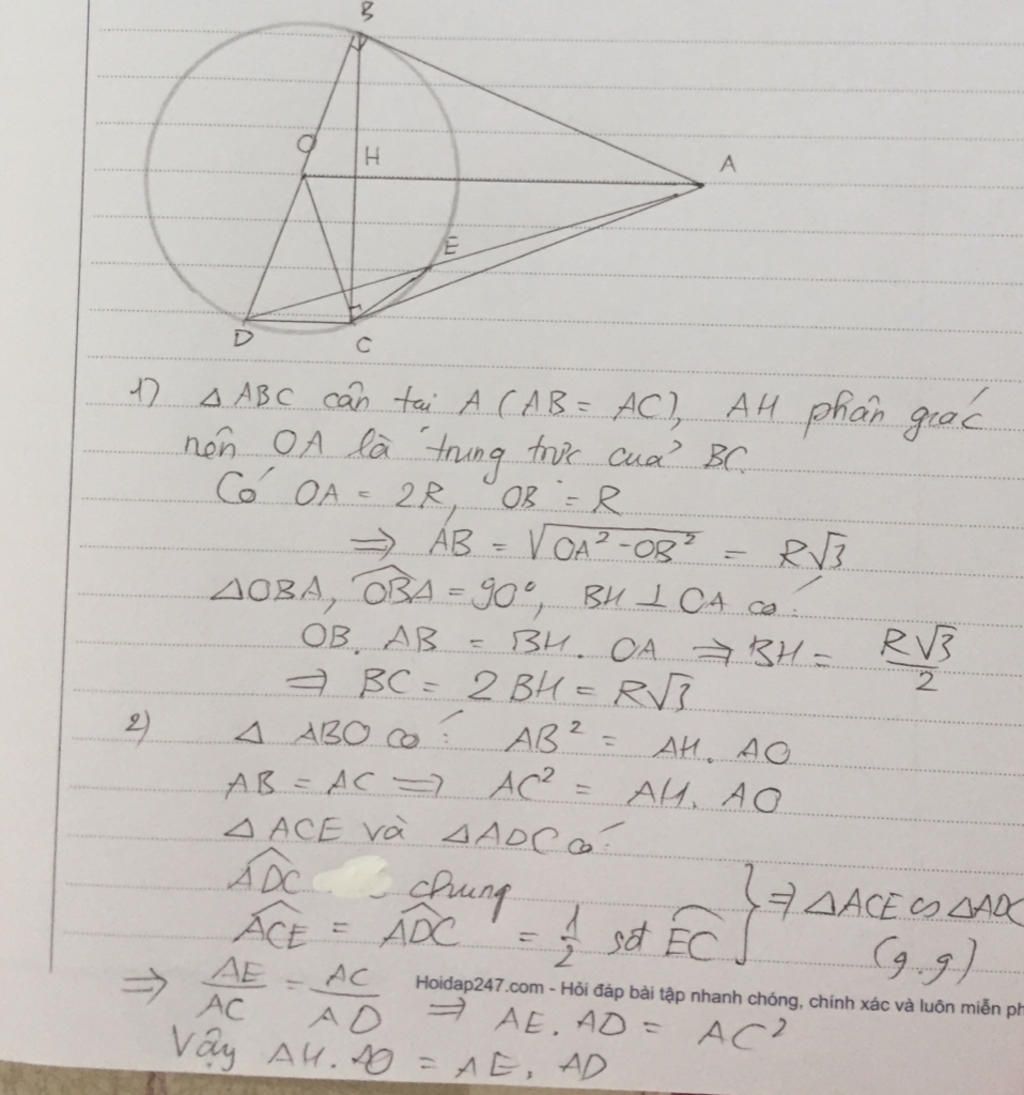 B
O
H
A
E
D
C
1) △ABC cân tại A (AB = AC), AH phân giác
nên OA là trung trực của BC.
Có OA = 2R, OB = R
⇒ AB = √(OA² - OB²) = R√3
△OBA, \widehat{OBA} = 90°, BH ⊥ OA có:
OB. AB = BH. OA ⇒ BH = R√3/2
⇒ BC = 2BH = R√3
2) △ ABO có: AB² = AH. AO
AB = AC ⇒ AC² = AH. AO
△ ACE và △ADC có:
\widehat{ADC} chung
\widehat{ACE} = \widehat{ADC} = 1/2 sđ \widehat{EC} } ⇒ △ACE ∽ △ADC
(g.g)
⇒ AE/AC = AC/AD ⇒ AE. AD = AC²
Hoidap247.com - Hỏi đáp bài tập nhanh chóng, chính xác và luôn miễn ph
Vậy AH. AO = AE. AD